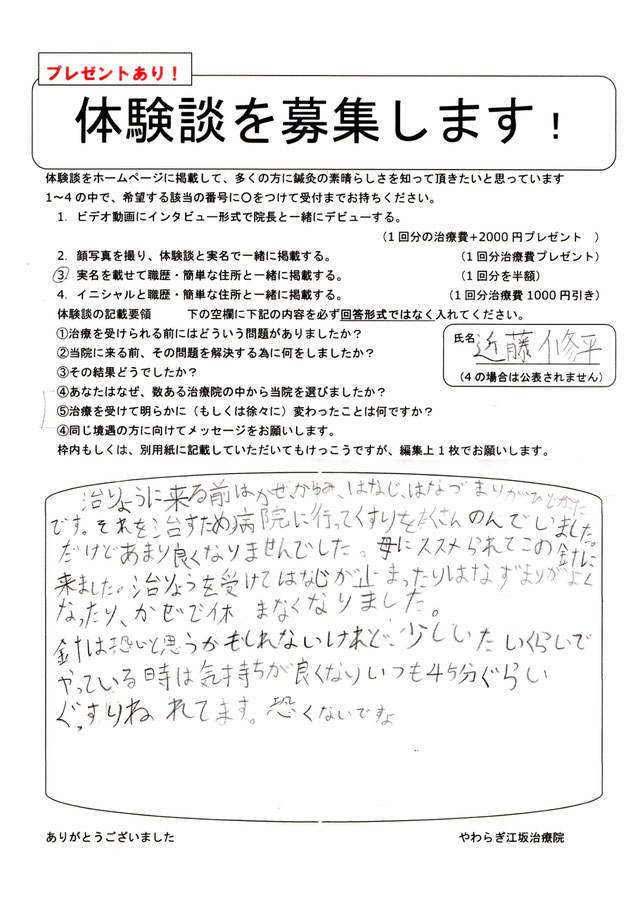 プレゼントあり！
体験談を募集します！
体験談をホームページに掲載して、多くの方に鍼灸の素晴らしさを知って頂きたいと思っています
1～4の中で、希望する該当の番号に〇をつけて受付までお持ちください。
1. ビデオ動画にインタビュー形式で院長と一緒にデビューする。
（1回分の治療費+2000円プレゼント　）
2. 顔写真を撮り、体験談と実名で一緒に掲載する。　（1回分治療費プレゼント）
3. 実名を載せて職歴・簡単な住所と一緒に掲載する。　（1回分を半額）
4. イニシャルと職歴・簡単な住所と一緒に掲載する。　（1回分治療費1000円引き）
体験談の記載要領　　下の空欄に下記の内容を必ず回答形式ではなく入れてください。
①治療を受けられる前にはどういう問題がありましたか？
氏名 近藤 修平
②当院に来る前、その問題を解決する為に何をしましたか？
③その結果どうでしたか？
（4の場合は公表されません）
④あなたはなぜ、数ある治療院の中から当院を選びましたか？
⑤治療を受けて明らかに（もしくは徐々に）変わったことは何ですか？
④同じ境遇の方に向けてメッセージをお願いします。
枠内もしくは、別用紙に記載していただいてもけっこうですが、編集上1枚でお願いします。
治りょうに来る前はかぜ、かゆみ、はなじ、はなづまりがひどかった
です。それを治すため病院に行ってくすりをたくさんのんでいました。
だけどあまり良くなりませんでした。母にススメられてこの針に
来ました。治りょうを受けてはなじが止まったりはなずまりがよく
なったり、かぜで休まなくなりました。
針は恐いと思うかもしれないけれど、少しいたいくらいで
やっている時は気持ちが良くなりいつも45分ぐらい
ぐっすりねれてます。恐くないですよ
ありがとうございました
やわらぎ江坂治療院